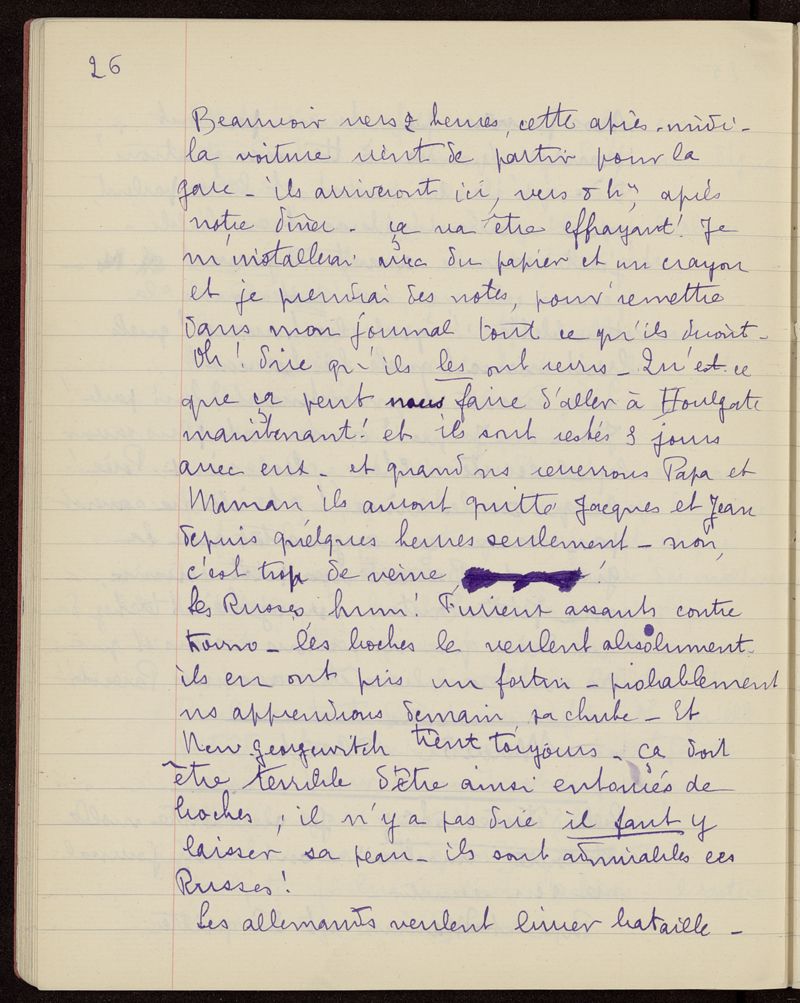 26
Beauvoir vers 2 heures, cette après-midi -
la voiture vient de partir pour la
gare - ils arriveront ici, vers 8 h ½ après
notre dîner - ça va être effrayant! Je
m'installerai avec du papier et un crayon
et je prendrai des notes, pour remettre
dans mon journal tout ce qu'ils diront -
Oh! dire qu'ils les ont revus - Qu'est ce
que ça peut nous faire d'aller à Houlgate
maintenant! et ils sont restés 3 jours
avec eux - et quand ns reverrons Papa et
Maman ils auront quitté Jacques et Jean
depuis quelques heures seulement - non,
c'est trop de veine !
Les Russes, hum! Furieux assauts contre
Kovno - les boches le veulent absolument -
ils en ont pris un fortin - probablement
ns apprendrons demain, sa chute - Et
Novo georgewitch tient toujours - ça doit
être terrible d'être ainsi entourés de
boches ; il n'y a pas dire il faut y
laisser sa peau - ils sont admirables ces
Russes!
Les allemands veulent livrer bataille -